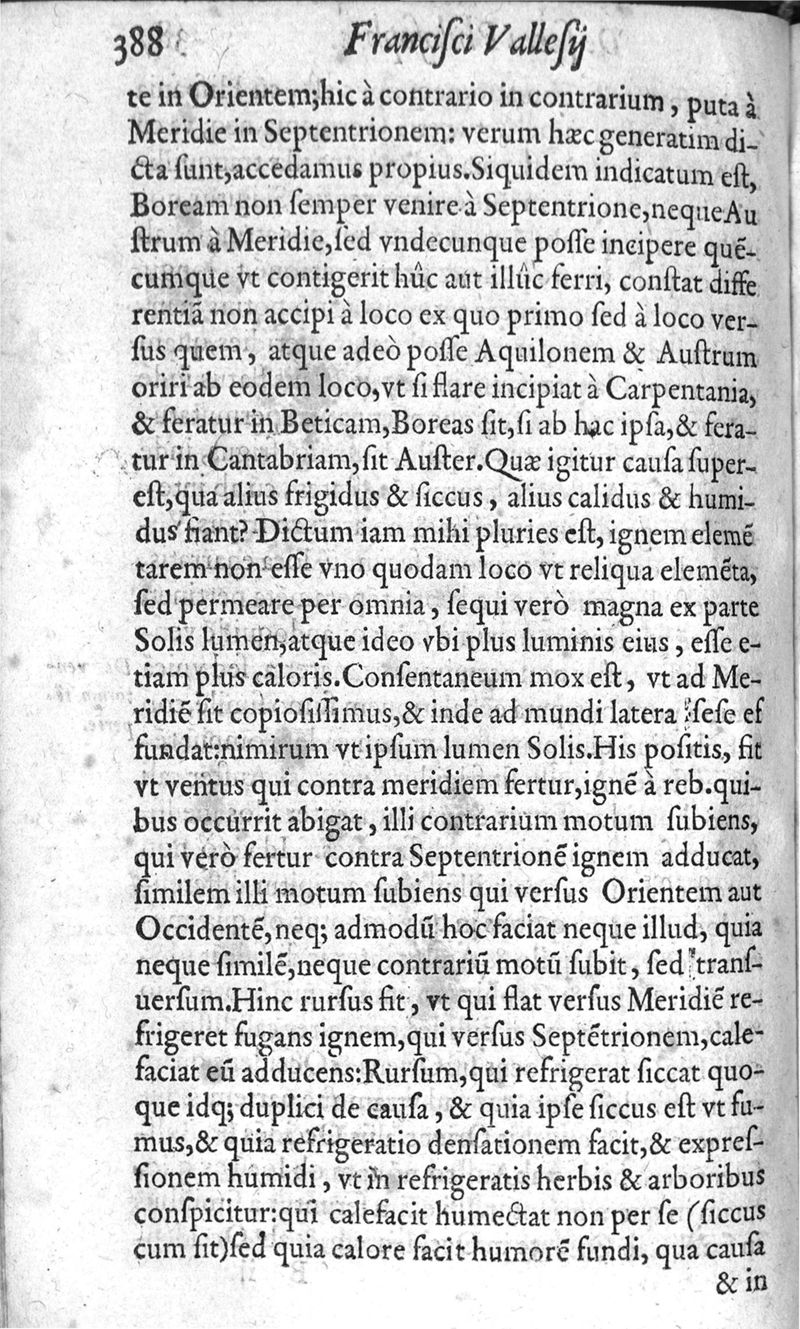 388 Franciſci Valleſij
te in Orientem;hic à contrario in contrarium, puta à
Meridie in Septentrionem: verum hæc generatim di-
cta ſunt,accedamus propius.Siquidem indicatum eſt,
Boream non ſemper venire à Septentrione,neque Au
ſtrum à Meridie,ſed vndecunque poſſe incipere quē-
cumque vt contigerit hûc aut illûc ferri, conſtat diffe
rentiā non accipi à loco ex quo primo ſed à loco ver-
ſus quem, atque adeò poſſe Aquilonem & Auſtrum
oriri ab eodem loco,vt ſi flare incipiat à Carpentania,
& feratur in Beticam,Boreas ſit,ſi ab hac ipſa,& fera-
tur in Cantabriam,ſit Auſter.Quæ igitur cauſa ſuper-
eſt,qua alius frigidus & ſiccus, alius calidus & humi-
dus fiant? Dictum iam mihi pluries eſt, ignem elemē
tarem non eſſe vno quodam loco vt reliqua elemēta,
ſed permeare per omnia, ſequi verò magna ex parte
Solis lumen,atque ideo vbi plus luminis eius, eſſe e-
tiam plus caloris.Conſentaneum mox eſt, vt ad Me-
ridiē ſit copioſiſſimus,& inde ad mundi latera ſeſe ef
fundat:nimirum vt ipſum lumen Solis.His poſitis, fit
vt ventus qui contra meridiem fertur,ignē à reb.qui-
bus occurrit abigat, illi contrarium motum ſubiens,
qui verò fertur contra Septentrionē ignem adducat,
ſimilem illi motum ſubiens qui verſus Orientem aut
Occidentē,neq; admodū hoc faciat neque illud, quia
neque ſimilē,neque contrariū motū ſubit, ſed tranſ-
uerſum.Hinc rurſus fit, vt qui flat verſus Meridiē re-
frigeret fugans ignem,qui verſus Septētrionem,cale-
faciat eū adducens:Rurſum,qui refrigerat ſiccat quo-
que idq; duplici de cauſa, & quia ipſe ſiccus eſt vt fu-
mus,& quia refrigeratio denſationem facit,& expreſ-
ſionem humidi, vt in refrigeratis herbis & arboribus
conſpicitur:qui calefacit humectat non per ſe (ſiccus
cum ſit)ſed quia calore facit humorē fundi, qua cauſa
& in